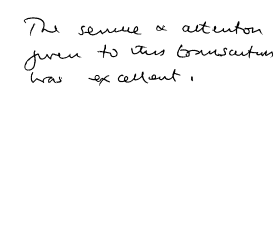 The service & attention
given to this transaction
was excellent.